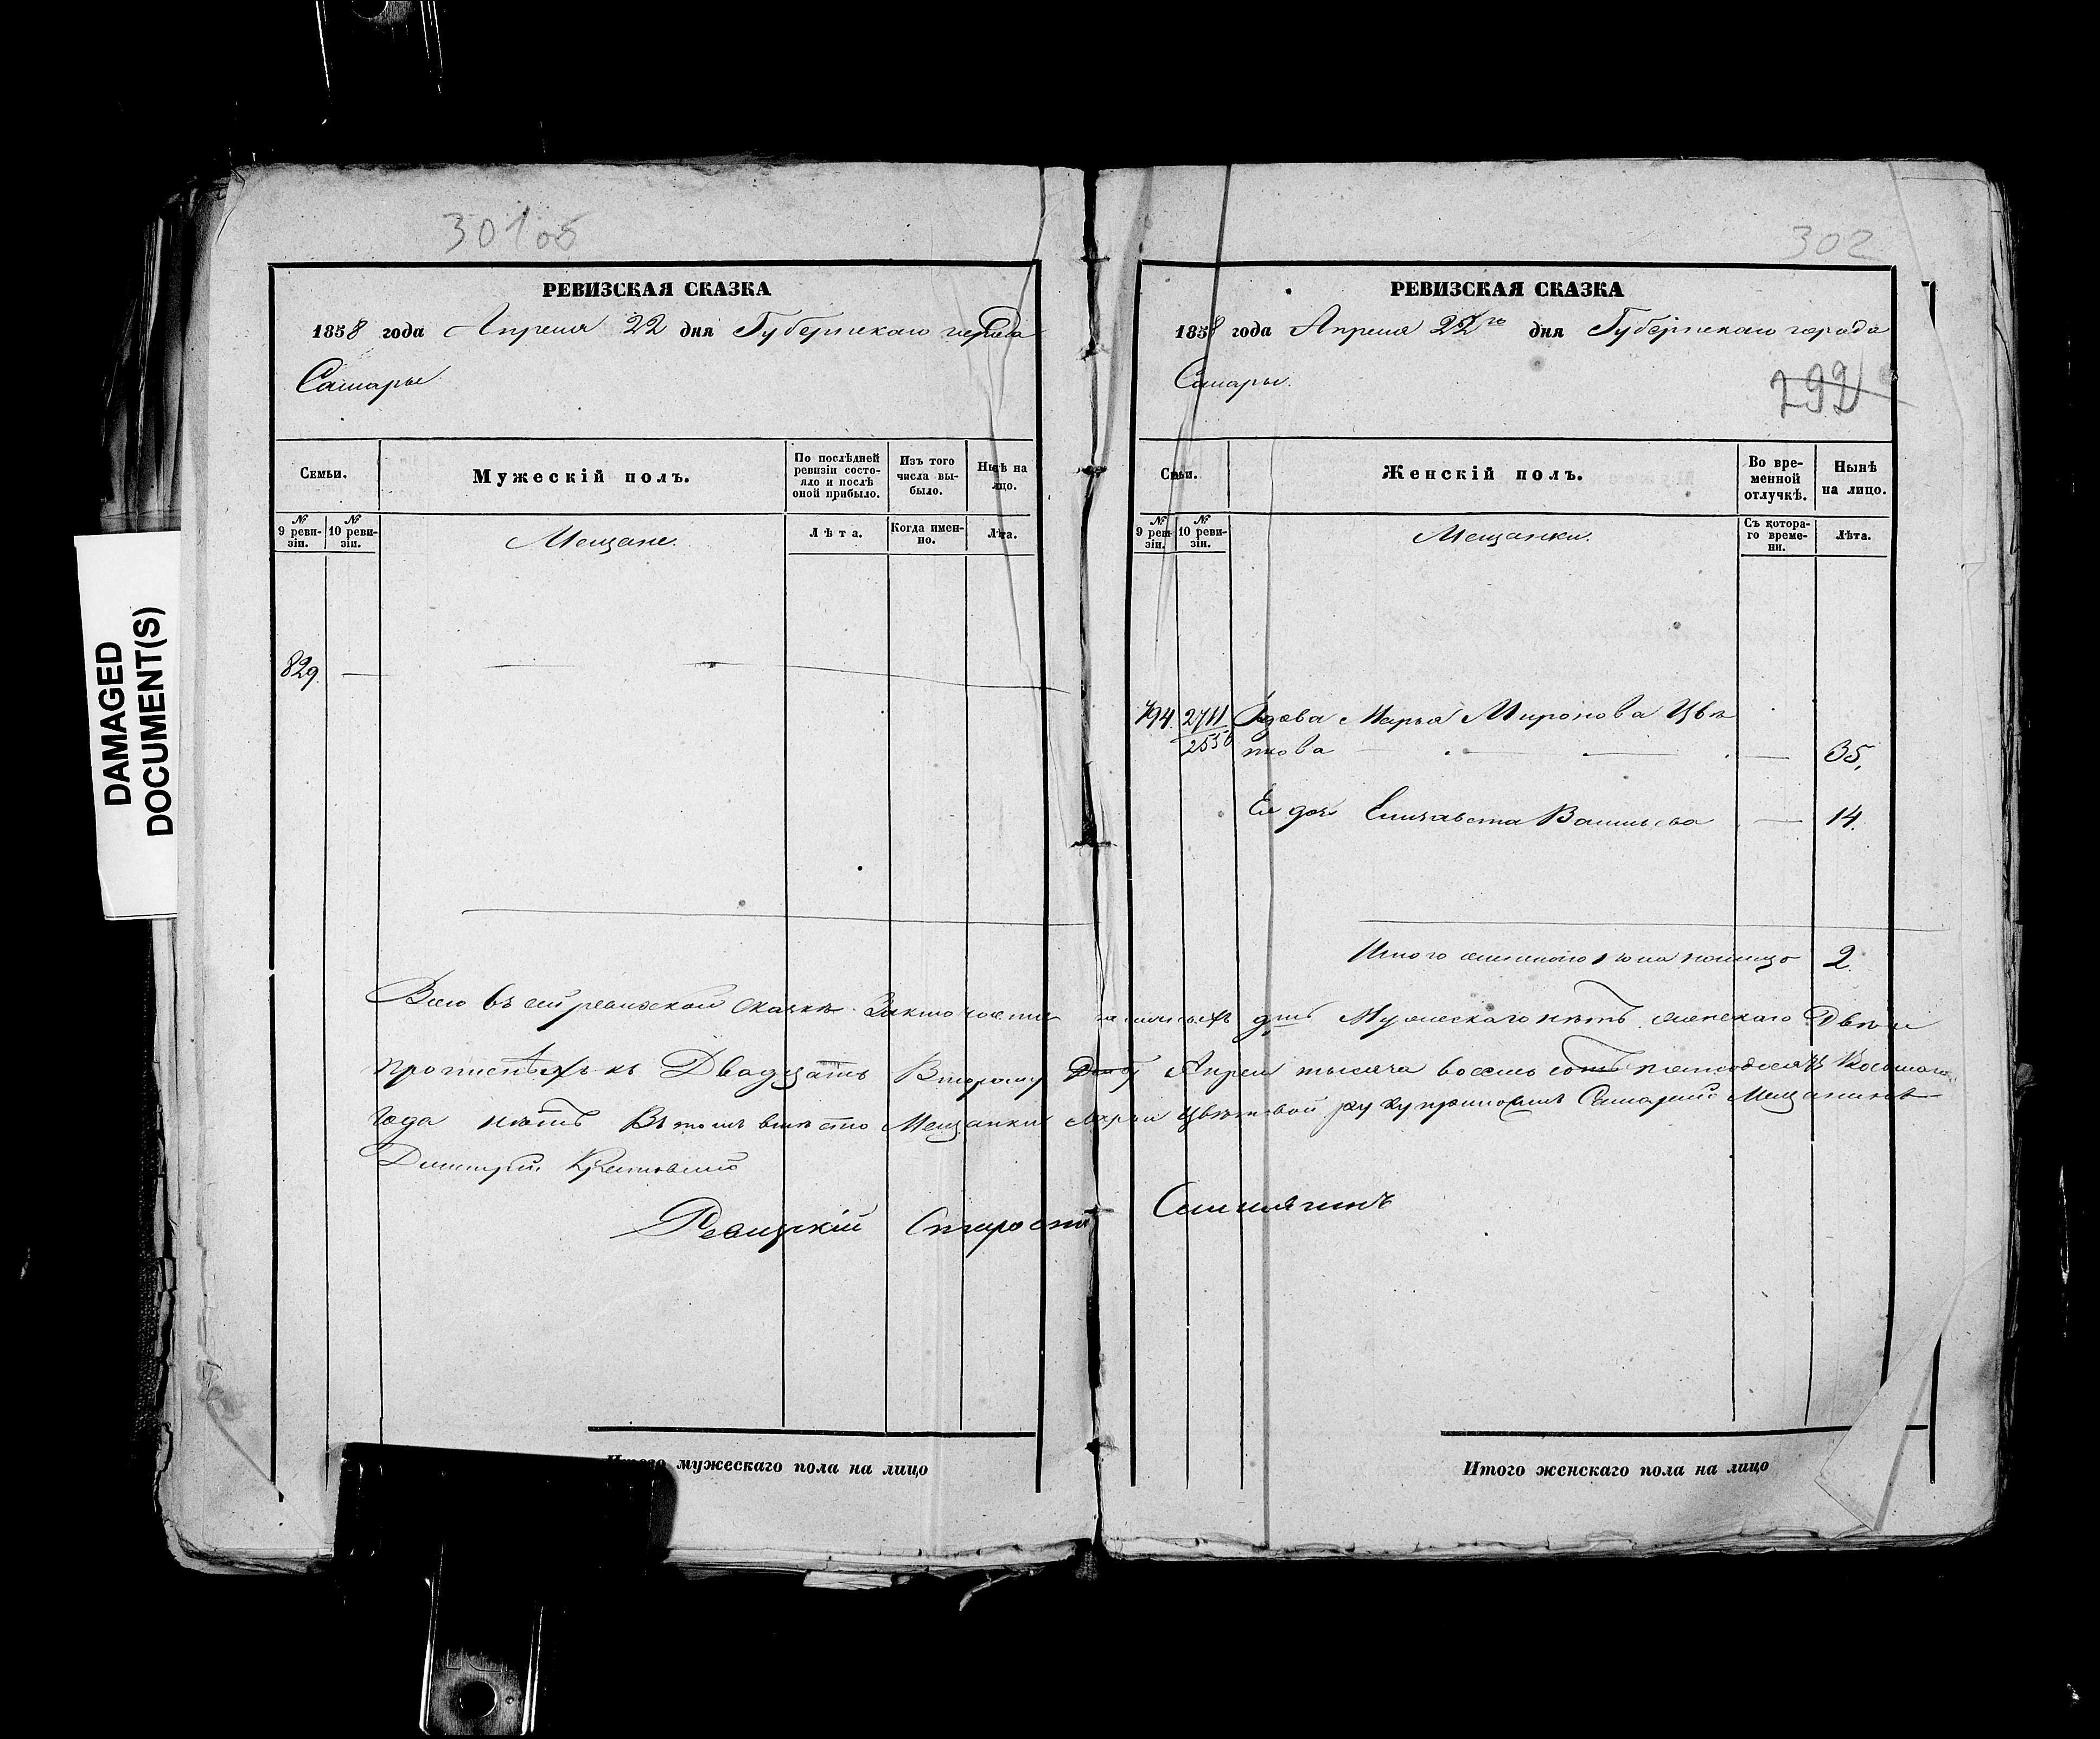 301об
РЕВИЗСКАЯ СКАЗКА
1858 года Апреля 22 дня Губернскаго города
Самары
Семьи.
Мужескій полъ.
По послѣдней ревизіи состояло и послѣ оной прибыло.
Изъ того числа выбыло.
Нынѣ на лицо.
№ 9 ревизіи.
№ 10 ревизіи.
Мещане.
Лѣта.
Когда именно.
Лѣта.
829.
302
РЕВИЗСКАЯ СКАЗКА
1858 года Апреля 22го дня Губернскаго города
Самары.
292
Семьи.
Женскій полъ.
Во временной отлучкѣ.
Нынѣ на лицо.
№ 9 ревизіи.
№ 10 ревизіи.
Мещанки.
Съ котораго времени.
Лѣта.
794. 2711 Вдова Марья Миронова Цвѣ
2556 ткова 35.
Ея дочь Елизавета Васильева 14.
Итого женскаго пола налицо 2.
Всего въ сей ревизской сказкѣ заключается наличныхъ душъ Мужескаго нѣтъ женскаго Двѣ и
прописныхъ къ Двадцать Второму Апреля тысяча восемь сотъ пятьдесятъ Восьмаго
года нѣтъ Въ томъ вместо Мещанки Марьи Цвѣтковой руку приложилъ Самарскій Мещанинъ
Дмитрій
Ревизскій Староста
Итого мужескаго пола на лицо
Итого женскаго пола на лицо
DAMAGED
DOCUMENT(S)